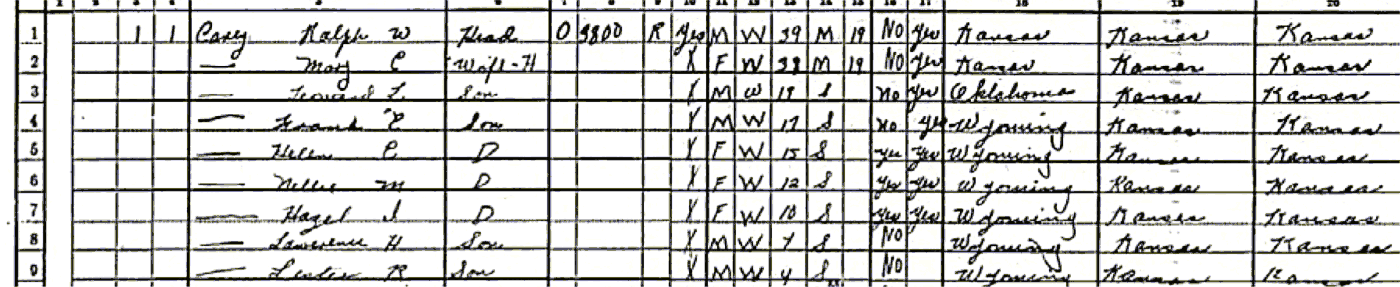 5 6 7 8 9 10 11 12 13 14 15 16 17 18 19 20
1 1 1 Casey Ralph W Head O 3800 R Yes M W 39 M 19 No Yes Kansas Kansas Kansas
2 — Mary C Wife-H X F W 38 M 19 No Yes Kansas Kansas Kansas
3 — L. Son X M W S No Yes Oklahoma Kansas Kansas
4 — Frank E Son X M W 17 S No Yes Wyoming Kansas Kansas
5 — Helen C D X F W 15 S Yes Yes Wyoming Kansas Kansas
6 — Nellie M D X F W 12 S Yes Yes Wyoming Kansas Kansas
7 — Hazel I D X F W 10 S Yes Yes Wyoming Kansas Kansas
8 — Lawrence H Son X M W 7 S No Wyoming Kansas Kansas
9 — Leslie R Son X M W 4 S No Wyoming Kansas Kansas